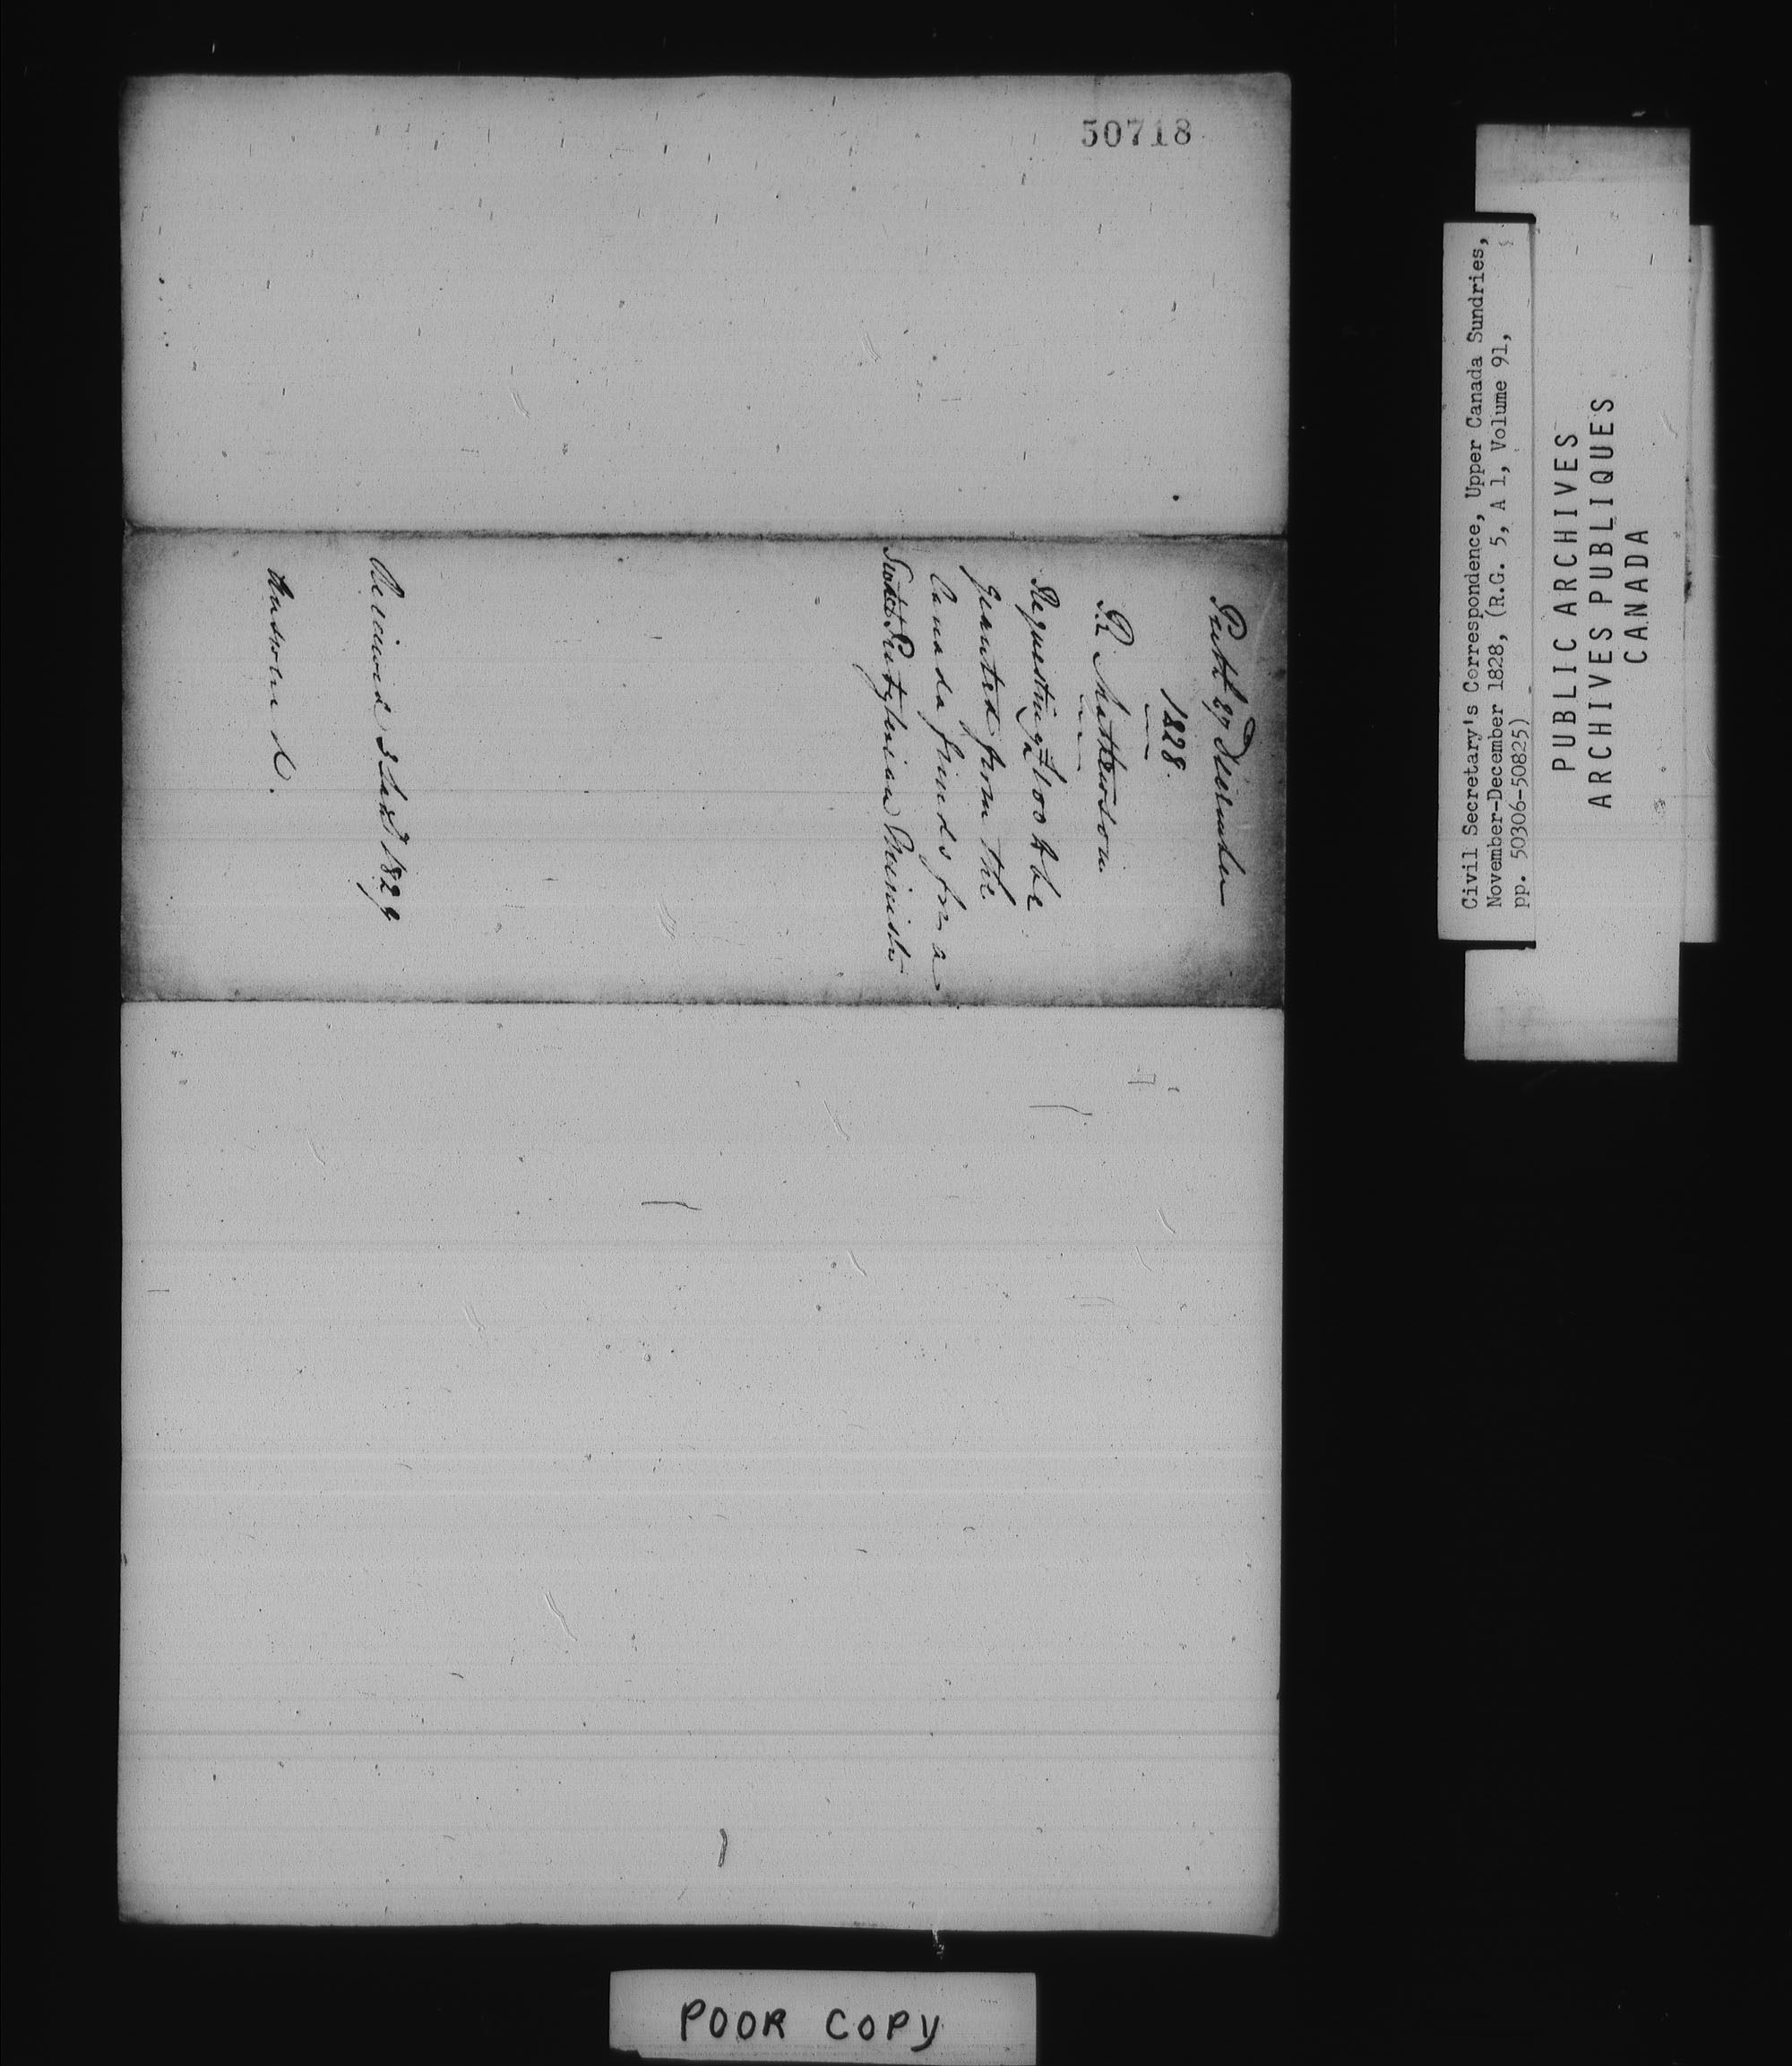 50718
Perth 27 December
1828.
R. Matheson
Requesting £100 to be
granted from the
Canada funds for a
Scotch Presbyterian Minister
Received 3 Jany 1829
Answered.
Civil Secretary's Correspondence, Upper Canada Sundries,
November-December 1828, (R.G. 5, A 1, Volume 91,
pp. 50306-50825)
PUBLIC ARCHIVES
ARCHIVES PUBLIQUES
CANADA
POOR COPY